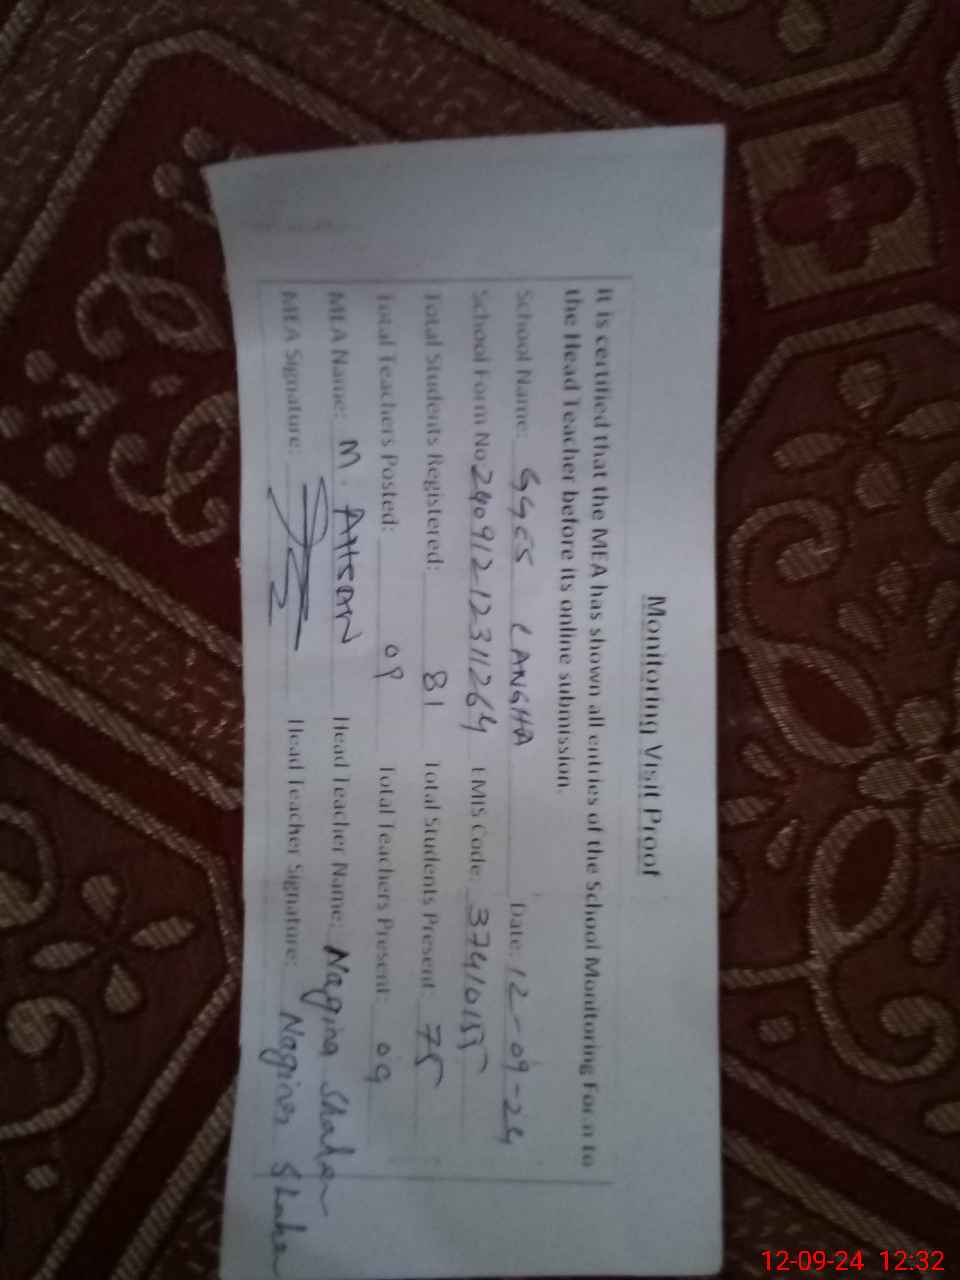 Monitoring Visit Proof
It is certified that the MEA has shown all entries of the School Monitoring Form to
the Head Teacher before its online submission.
School Name: GGES LANGHA Date: 12-09-24
School Form No 24091212311264 EMIS Code: 37410155
Total Students Registered: 81 Total Students Present: 75
Total Teachers Posted: 09 Total Teachers Present: 09
MEA Name: M. AHSAN Head Teacher Name: Nagina Shaheen
MEA Signature: Head Teacher Signature: Nagina Shahe
12-09-24 12:32